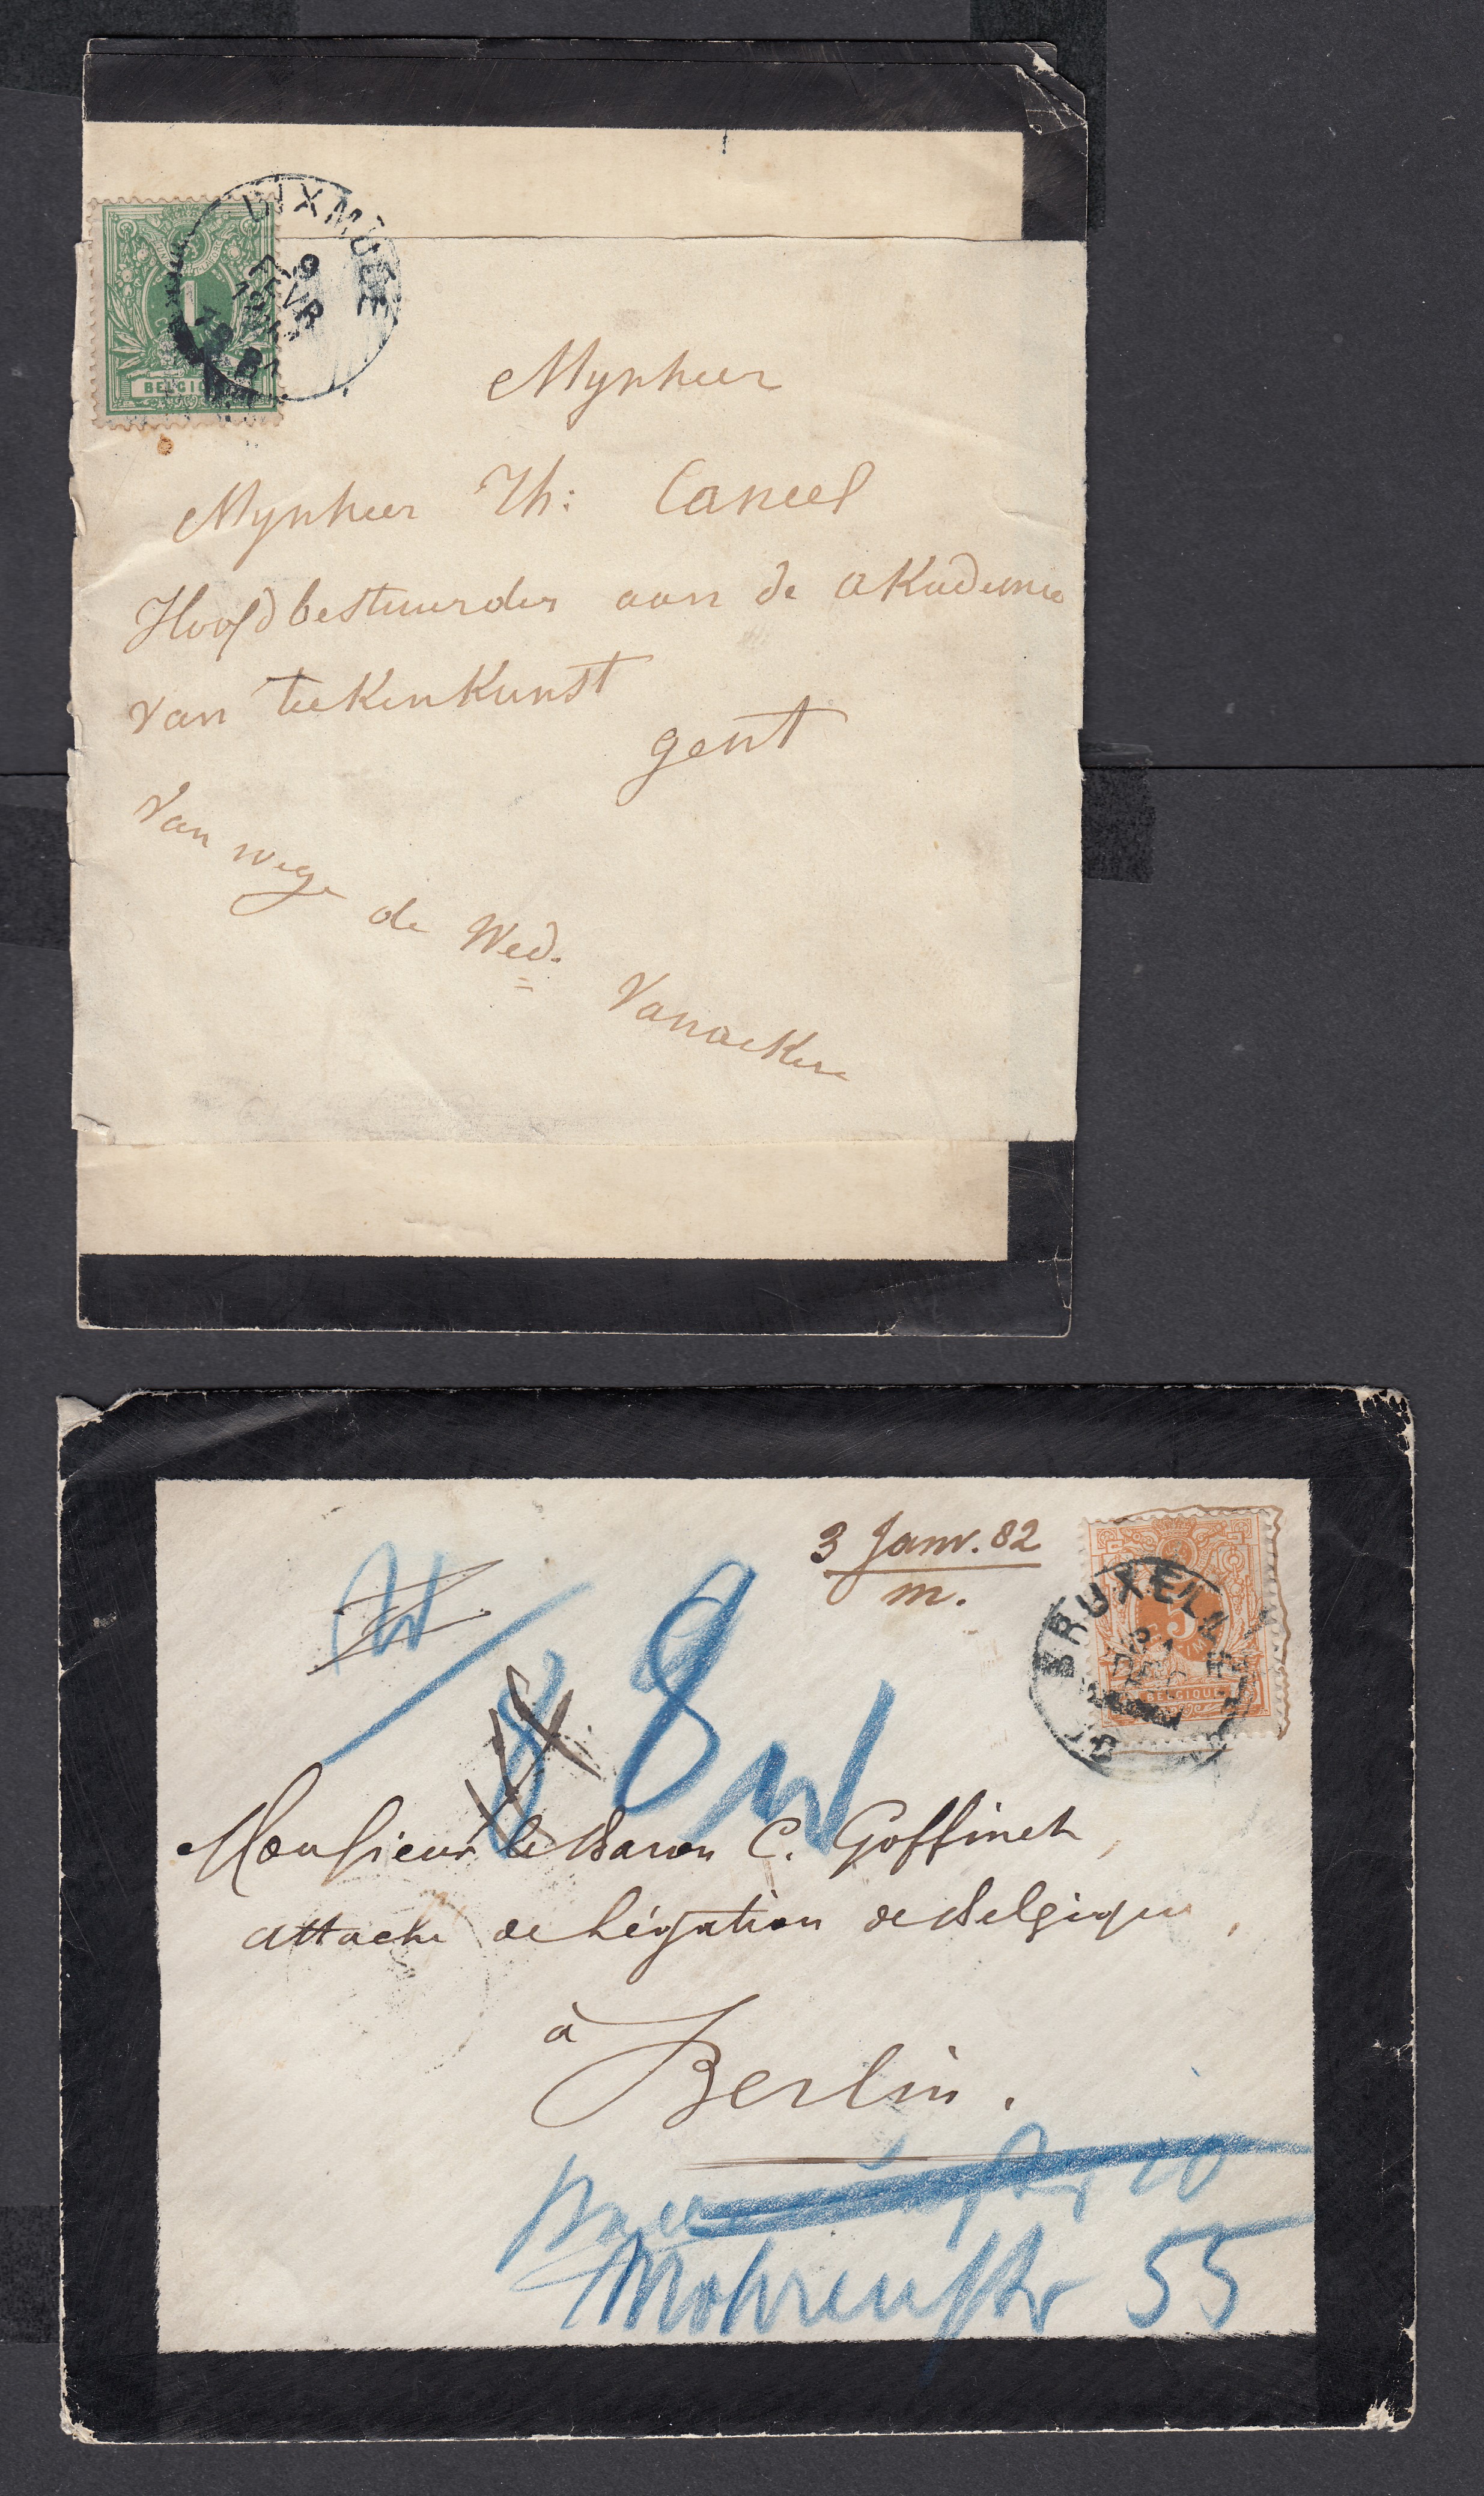 DIXMUDE
9
FÉVR
1
BELGIQUE
Mynheer
Mynheer Th: Caneel
Hoofdbestuurder aan de akademie
van teekenkunst
gent
Van wege de Wed. Vanackere
3 Janv. 82
m.
BRUXELLES
5
BELGIQUE
8 8
Monsieur le Baron C. Goffinet,
attaché de Légation de Belgique,
à
Berlin.
20
Mohrenstr 55